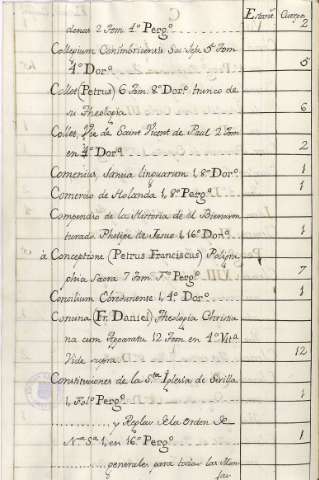 Estante Cuerpos
denas 2 Tom. 4º Pergº 2
Collegium Conimbricense Soc. Jesu 5 Tom.
4º Dorº 5
Collet (Petrus) 6 Tom. 8º Dorº trunco de
su Theologia 6
Collet, de Saint Vicent de Paul 2 Tom
en 4º Dorº 2
Comenius, Janua linguarum 1, 8º Dorº 1
Comercio de Holanda 1, 8º Pergº 1
Compendio de la Historia de el Bienaven
turado Phelipe de Jesus 1, 16º Dorº 1
à Conceptione (Petrus Franciscus) Poligra
phia Sacra 7 Tom. Fº Pergº 7
Concilium 1, 4º Dorº 1
Concina (Fr. Daniel) Theologia Christia
na cum Apparatu 12 Tom. en 4º Vitª
Vide supra 12
Constituciones de la Sta Iglesia de Sevilla
1, Folº Pergº 1
y Reglas de la Orden de
Nª Sª 1, en 16º Pergº 1
generales para todas las Mon
jas